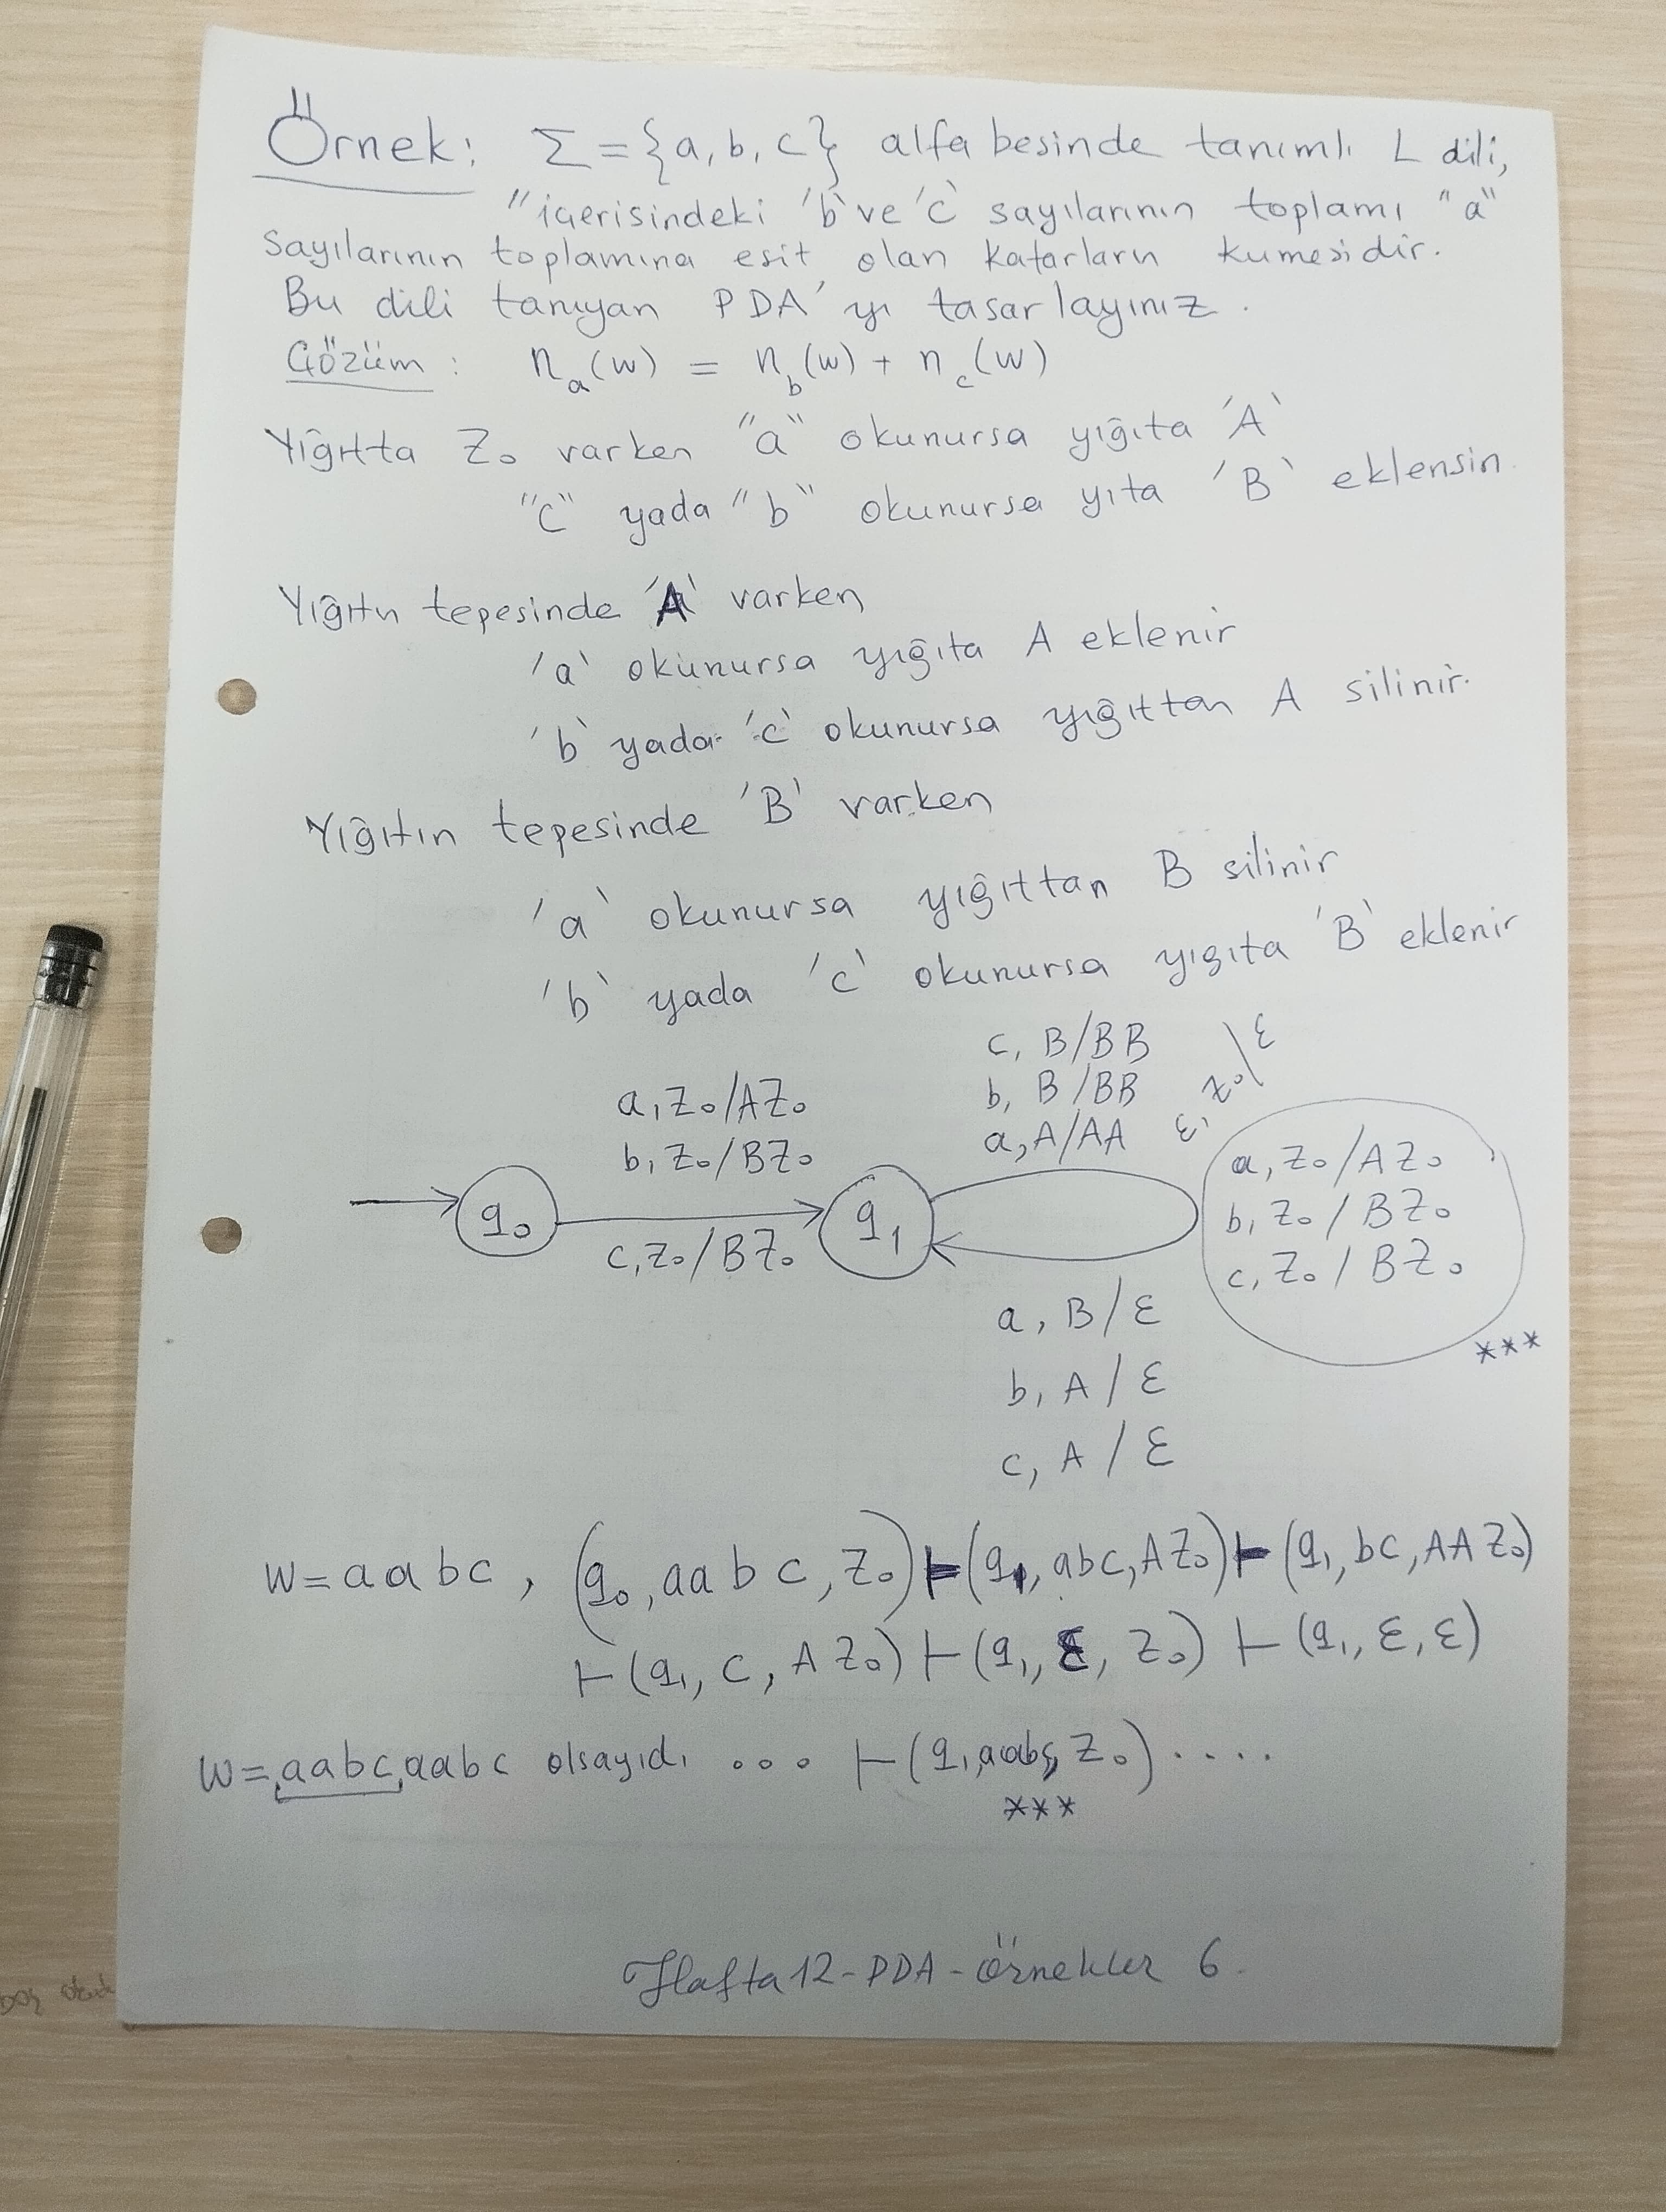 Örnek: Σ={a, b, c} alfabesinde tanımlı L dili,
"içerisindeki 'b' ve 'c' sayılarının toplamı "a"
sayılarının toplamına eşit olan katarların kümesidir.
Bu dili tanıyan PDA'yı tasarlayınız.
Çözüm: n_a(w) = n_b(w) + n_c(w)
Yığıtta Z₀ varken "a" okunursa yığıta 'A'
"c" yada "b" okunursa yıta 'B' eklensin.
Yığıtn tepesinde 'A' varken
'a' okunursa yığıta A eklenir
'b' yada 'c' okunursa yığıttan A silinir.
Yığıtın tepesinde 'B' varken
'a' okunursa yığıttan B silinir
'b' yada 'c' okunursa yıgıta 'B' eklenir
c, B/BB
b, B/BB
a, A/AA
ε, Z₀/ε
a, Z₀/AZ₀
b, Z₀/BZ₀
q₀
c, Z₀/BZ₀
q₁
a, Z₀/AZ₀
b, Z₀/BZ₀
c, Z₀/BZ₀
***
a, B/ε
b, A/ε
c, A/ε
w=aabc, (q₀, aabc, Z₀)⊢(q₁, abc, AZ₀)⊢(q₁, bc, AAZ₀)
⊢(q₁, c, AZ₀)⊢(q₁, ε, Z₀)⊢(q₁, ε, ε)
w=aabcaabc olsaydı ... ⊢(q₁, aabc, Z₀)....
***
Hafta 12-PDA-Örnekler 6.